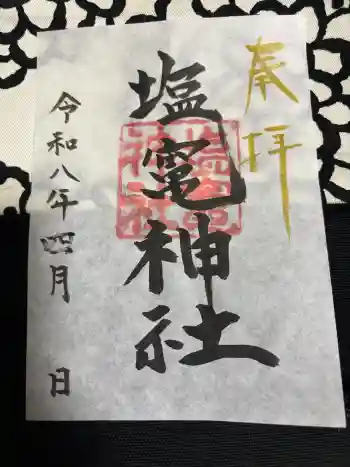 奉拝
塩竈神社
令和八年四月 日